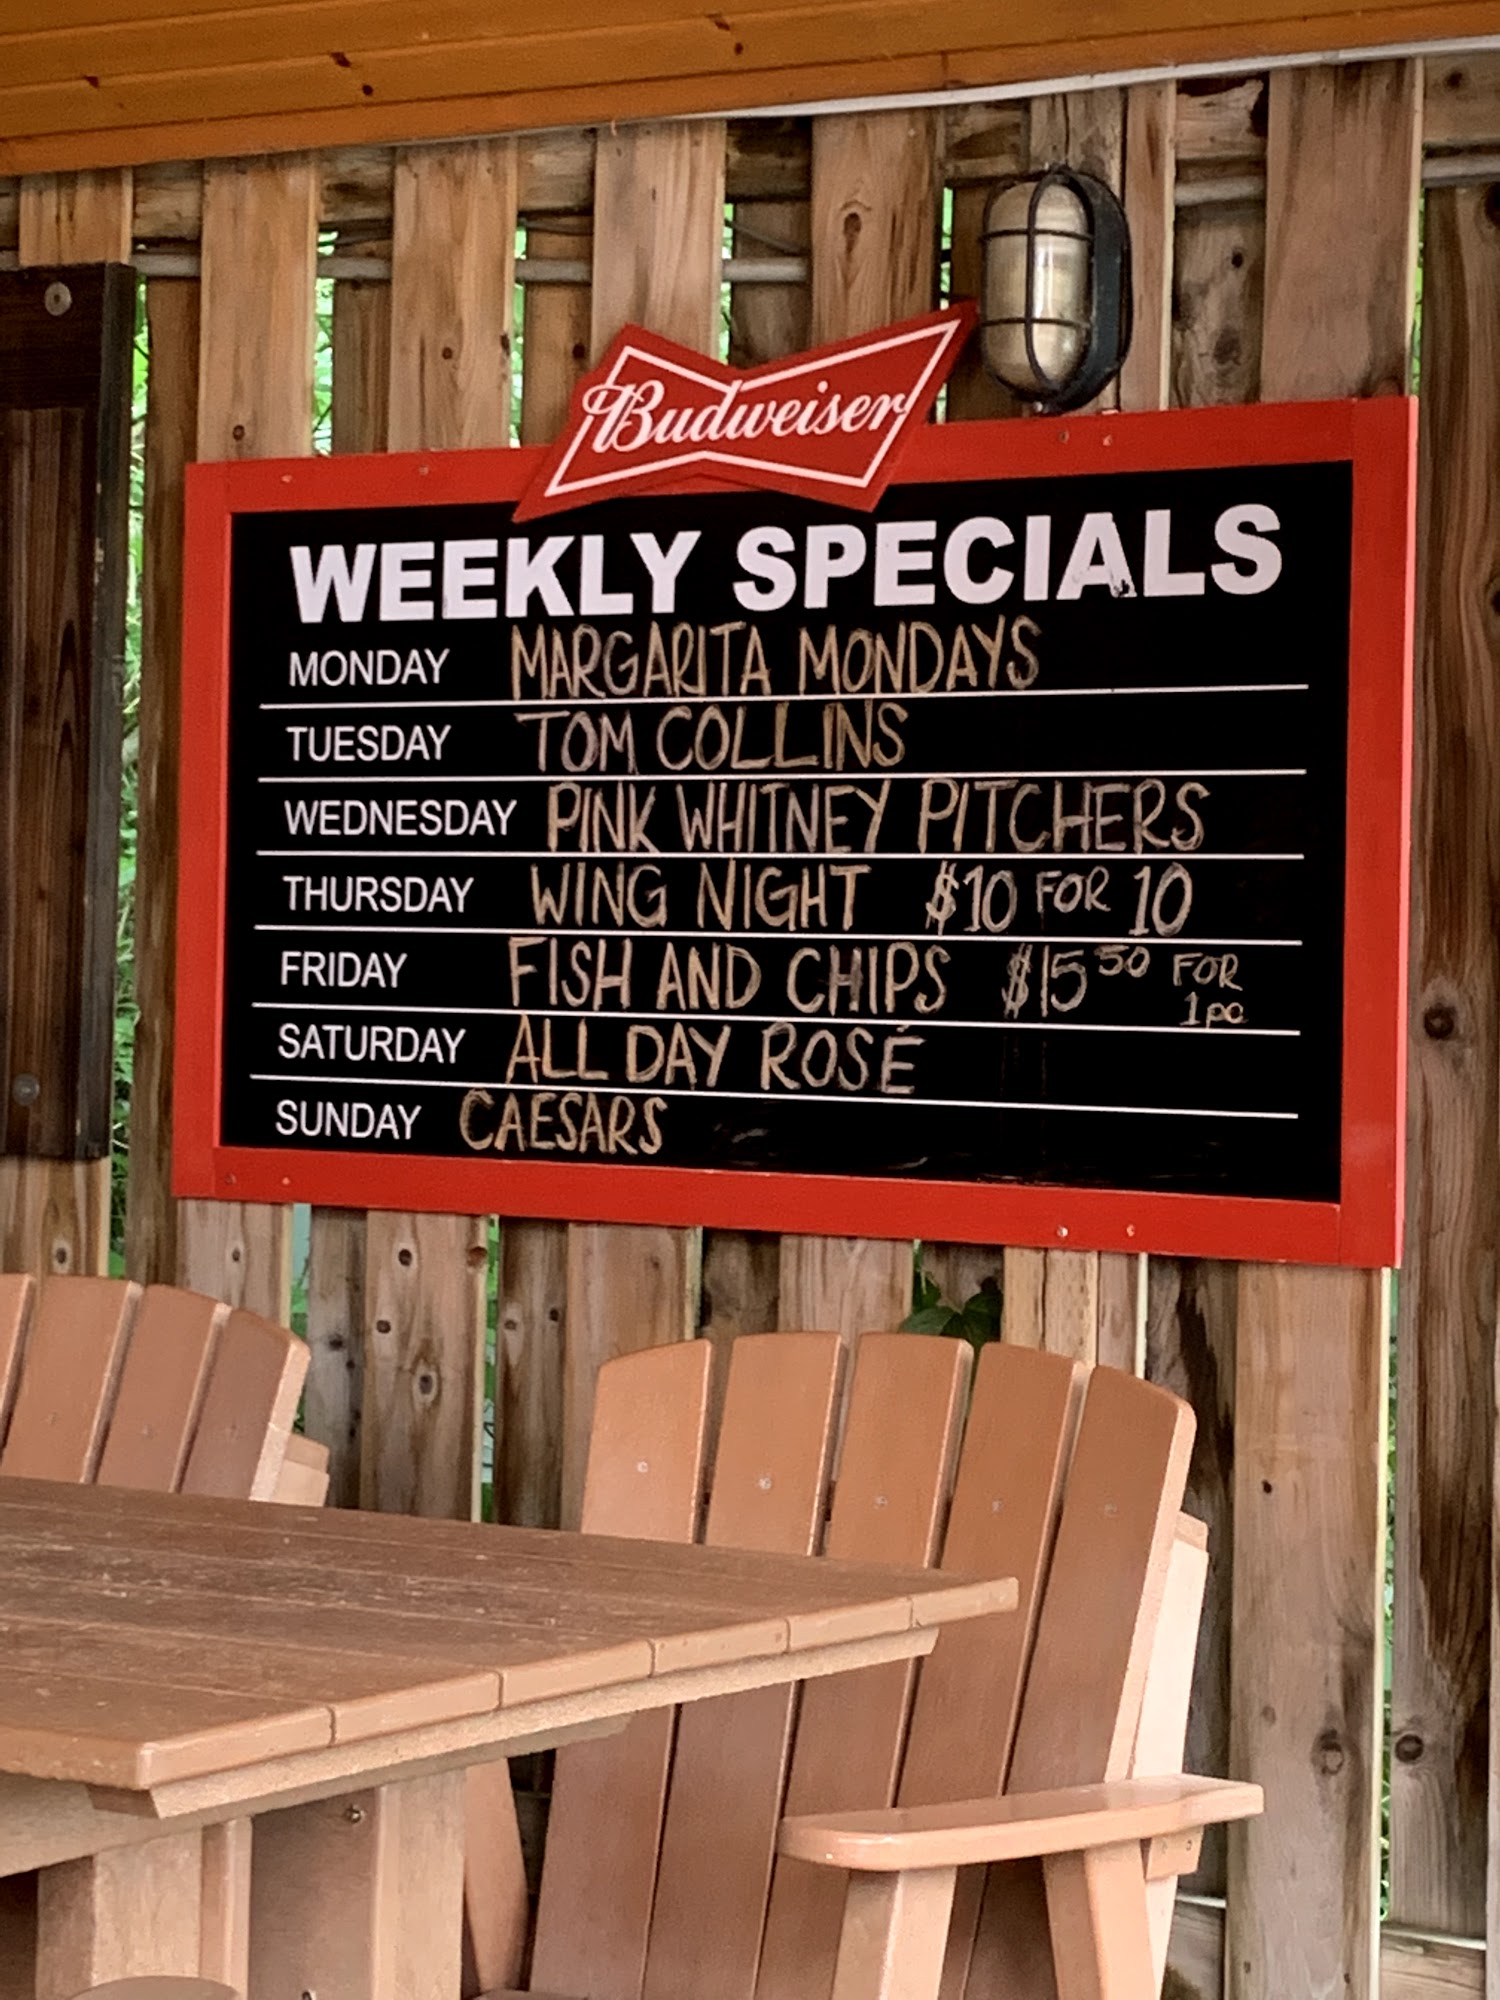 Budweiser
WEEKLY SPECIALS
MONDAY MARGARITA MONDAYS
TUESDAY TOM COLLINS
WEDNESDAY PINK WHITNEY PITCHERS
THURSDAY WING NIGHT $10 FOR 10
FRIDAY FISH AND CHIPS $15 50 FOR
1pc
SATURDAY ALL DAY ROSÉ
SUNDAY CAESARS